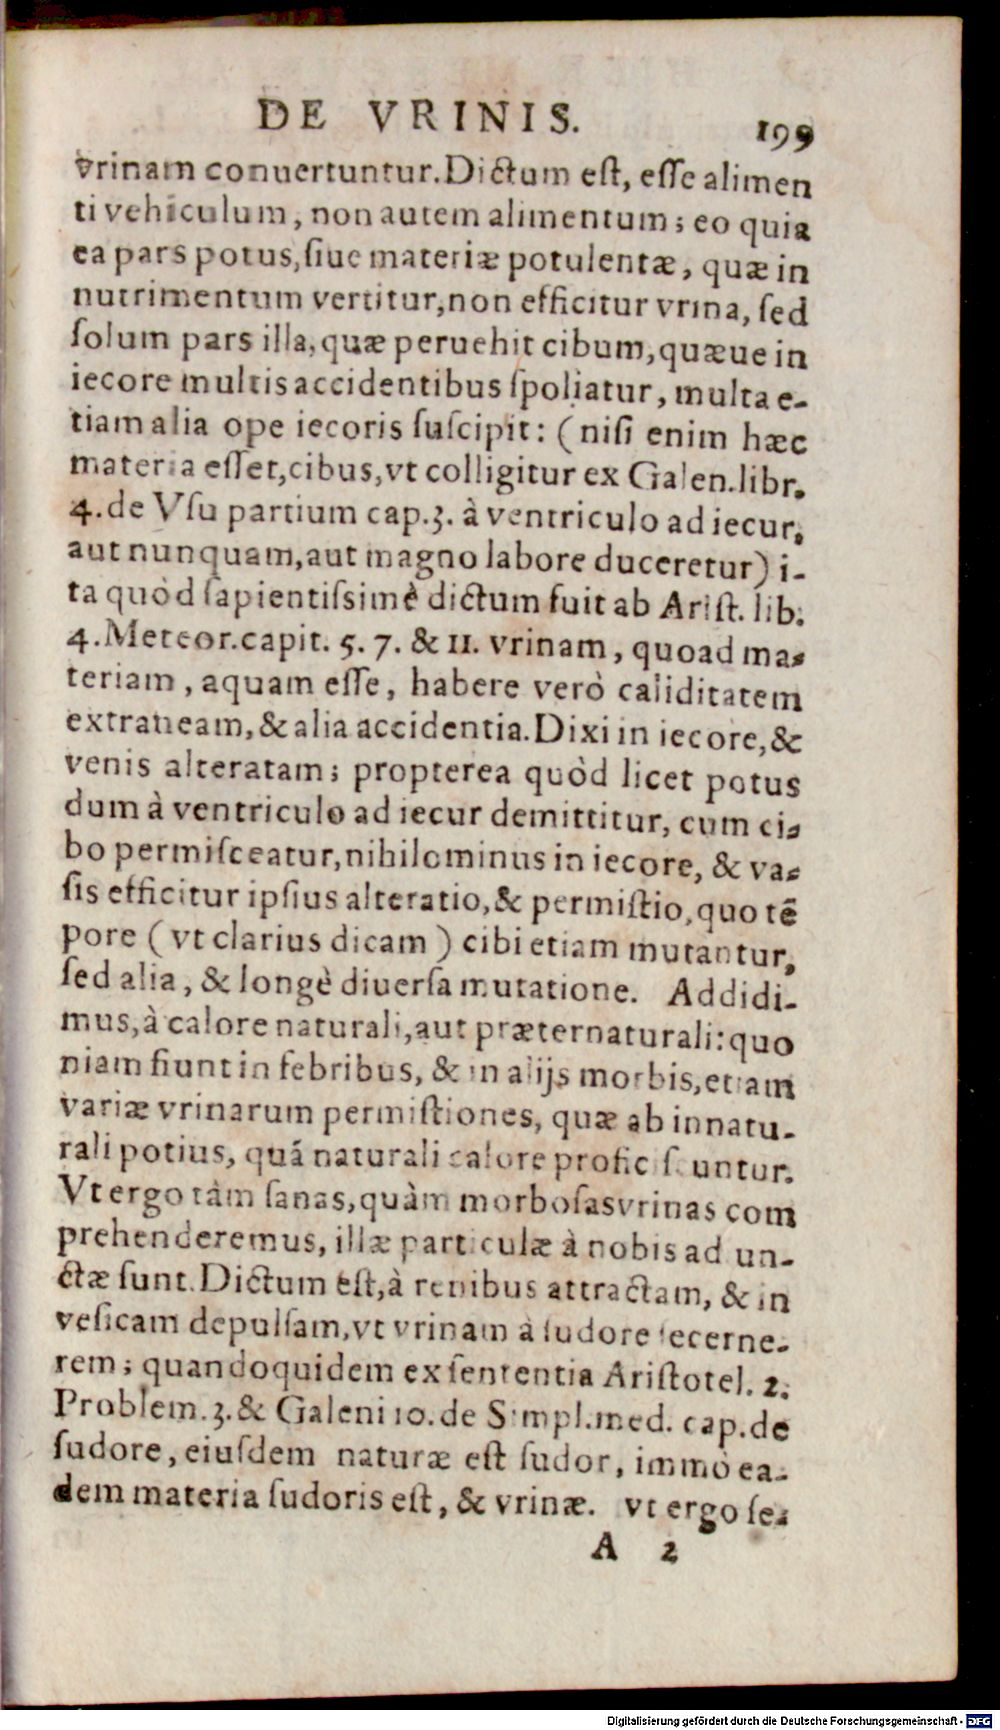 DE VRINIS. 199
vrinam conuertuntur. Dictum est, esse alimen
ti vehiculum, non autem alimentum; eo quia
ea pars potus, siue materiæ potulentæ, quæ in
nutrimentum vertitur, non efficitur vrina, sed
solum pars illa, quæ peruehit cibum, quæue in
iecore multis accidentibus spoliatur, multa e-
tiam alia ope iecoris suscipit: (nisi enim hæc
materia esset, cibus, vt colligitur ex Galen. libr.
4. de Vsu partium cap. 3. à ventriculo ad iecur,
aut nunquam, aut magno labore duceretur) i-
ta quòd sapientissimè dictum fuit ab Arist. lib.
4. Meteor. capit. 5. 7. & 11. vrinam, quoad ma-
teriam, aquam esse, habere verò caliditatem
extraneam, & alia accidentia. Dixi in iecore, &
venis alteratam; propterea quòd licet potus
dum à ventriculo ad iecur demittitur, cum ci-
bo permisceatur, nihilominus in iecore, & va-
sis efficitur ipsius alteratio, & permistio, quo tē
pore (vt clarius dicam) cibi etiam mutantur,
sed alia, & longè diuersa mutatione. Addidi-
mus, à calore naturali, aut præternaturali: quo
niam fiunt in febribus, & in alijs morbis, etiam
variæ vrinarum permistiones, quæ ab innatu-
rali potius, quá naturali calore proficiscuntur.
Vt ergo tàm sanas, quàm morbosas vrinas com
prehenderemus, illæ particulæ à nobis ad un-
ctæ sunt. Dictum est, à renibus attractam, & in
vesicam depulsam, vt vrinam à sudore secerne-
rem; quandoquidem ex sententia Aristotel. 2.
Problem. 3. & Galeni 10. de Simpl. med. cap. de
sudore, eiusdem naturæ est sudor, immò ea-
dem materia sudoris est, & vrinæ. vt ergo se-
A 2
Digitalisierung gefördert durch die Deutsche Forschungsgemeinschaft - DFG